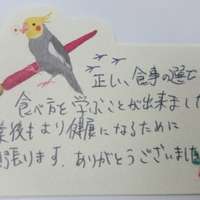 正しい食事の選び
食べ方を学ぶことが出来ました
業後もより健康になるために
張ります。ありがとうございました